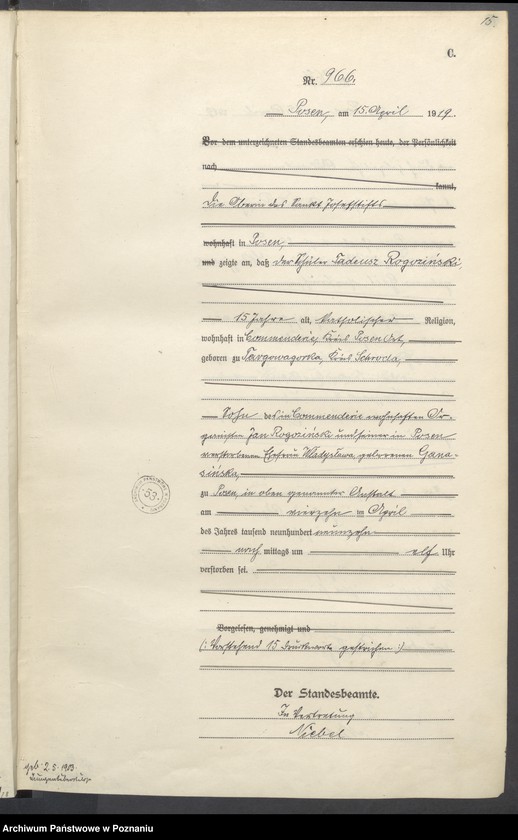 15.
C.
Nr. 966.
Posen, am 15. April 1919.
Vor dem unterzeichneten Standesbeamten erschien heute, der Persönlichkeit
nach
kannt,
die Oberin des Sankt Josefstifts
wohnhaft in Posen,
und zeigte an, daß der Schüler Tadeusz Rogoziński,
15 Jahre alt, katholischer Religion,
wohnhaft in Commenderie, Kreis Posen Ost,
geboren zu Targowagorka, Kreis Schroda,
Sohn des in Commenderie wohnhaften Or-
ganisten Jan Rogoziński und seiner in Posen
verstorbenen Ehefrau Władysława geborenen
sińska,
zu Posen, in oben genannter Anstalt
am vierzehn ten April
des Jahres tausend neunhundert neunzehn
nach mittags um elf Uhr
verstorben sei.
Vorgelesen, genehmigt und
(: Vorstehend 15 Druckworte gestrichen :)
Der Standesbeamte.
In Vertretung
Niebel
53
geb. 2.5.1903
Archiwum Państwowe w Poznaniu